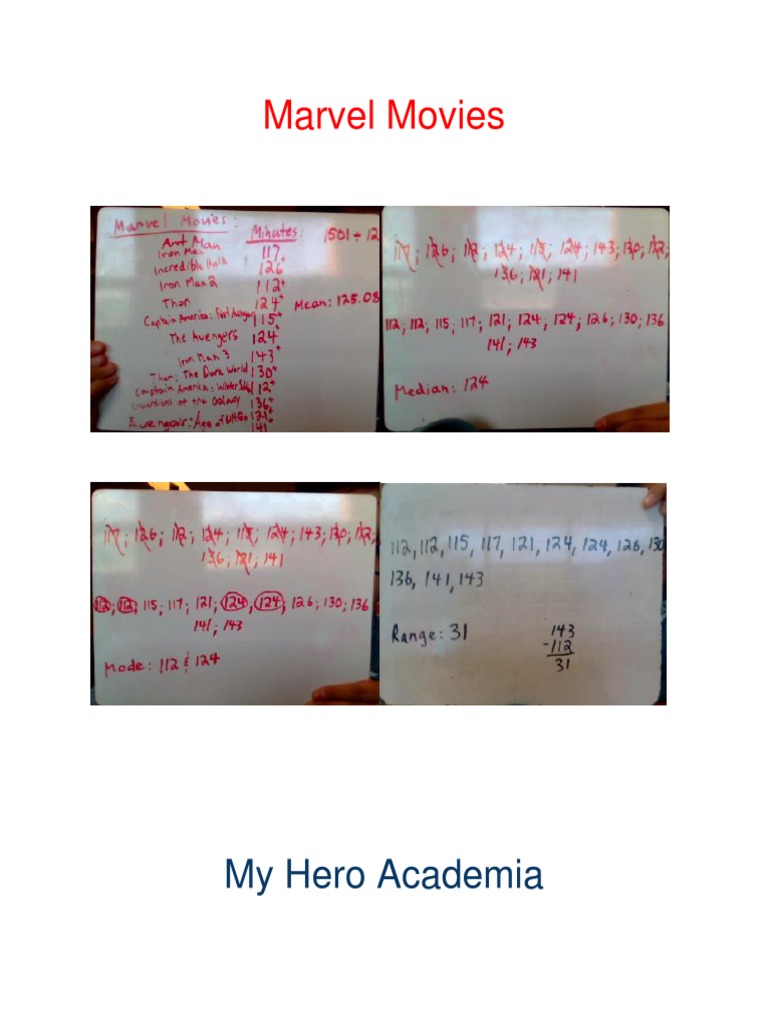 Marvel Movies
Marvel Movies: Minutes: 1501 ÷ 12
Ant Man
Iron Man 117
Incredible Hulk 126+
Iron Man 2 112+
Thor 124+ Mean: 125.08
Captain America: First Avenger 115+
The Avengers 124
Iron Man 3 143+
Thor: The Dark World 130+
Captain America: Winter 112+
Guardians of the Galaxy 136+
Avengers: Age of Ultron 121+
141
117; 126; 112; 124; 115; 124; 143; 130; 112;
136; 121; 141
112; 112; 115; 117; 121; 124, 124; 126; 130; 136
141; 143
Median: 124
117; 126; 112; 124; 115; 124; 143; 130; 112;
136; 121; 141
112; 112; 115; 117; 121; 124, 124; 126; 130; 136
141; 143
Mode: 112 & 124
112, 112, 115, 117, 121, 124, 124, 126, 130
136, 141, 143
Range: 31
143
-112
31
My Hero Academia